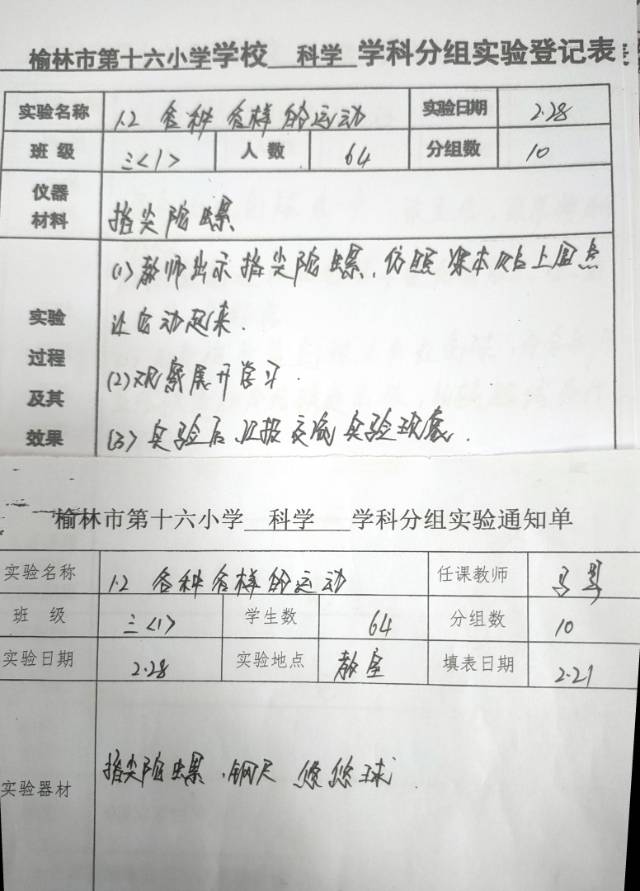 榆林市第十六小学学校 科学 学科分组实验登记表
实验名称 1.2 各种各样的运动 实验日期 2.28
班级 三<1> 人数 64 分组数 10
仪器
材料 指尖陀螺
(1)教师出示指尖陀螺,仿照课本贴上圆点
让它动起来.
实验
过程
及其
效果
(2)观察展开学习.
(3)实验后汇报交流实验现象.
榆林市第十六小学 科学 学科分组实验通知单
实验名称 1.2 各种各样的运动 任课教师
班级 三<1> 学生数 64 分组数 10
实验日期 2.28 实验地点 教室 填表日期 2.21
实验器材 指尖陀螺.钢尺 悠悠球